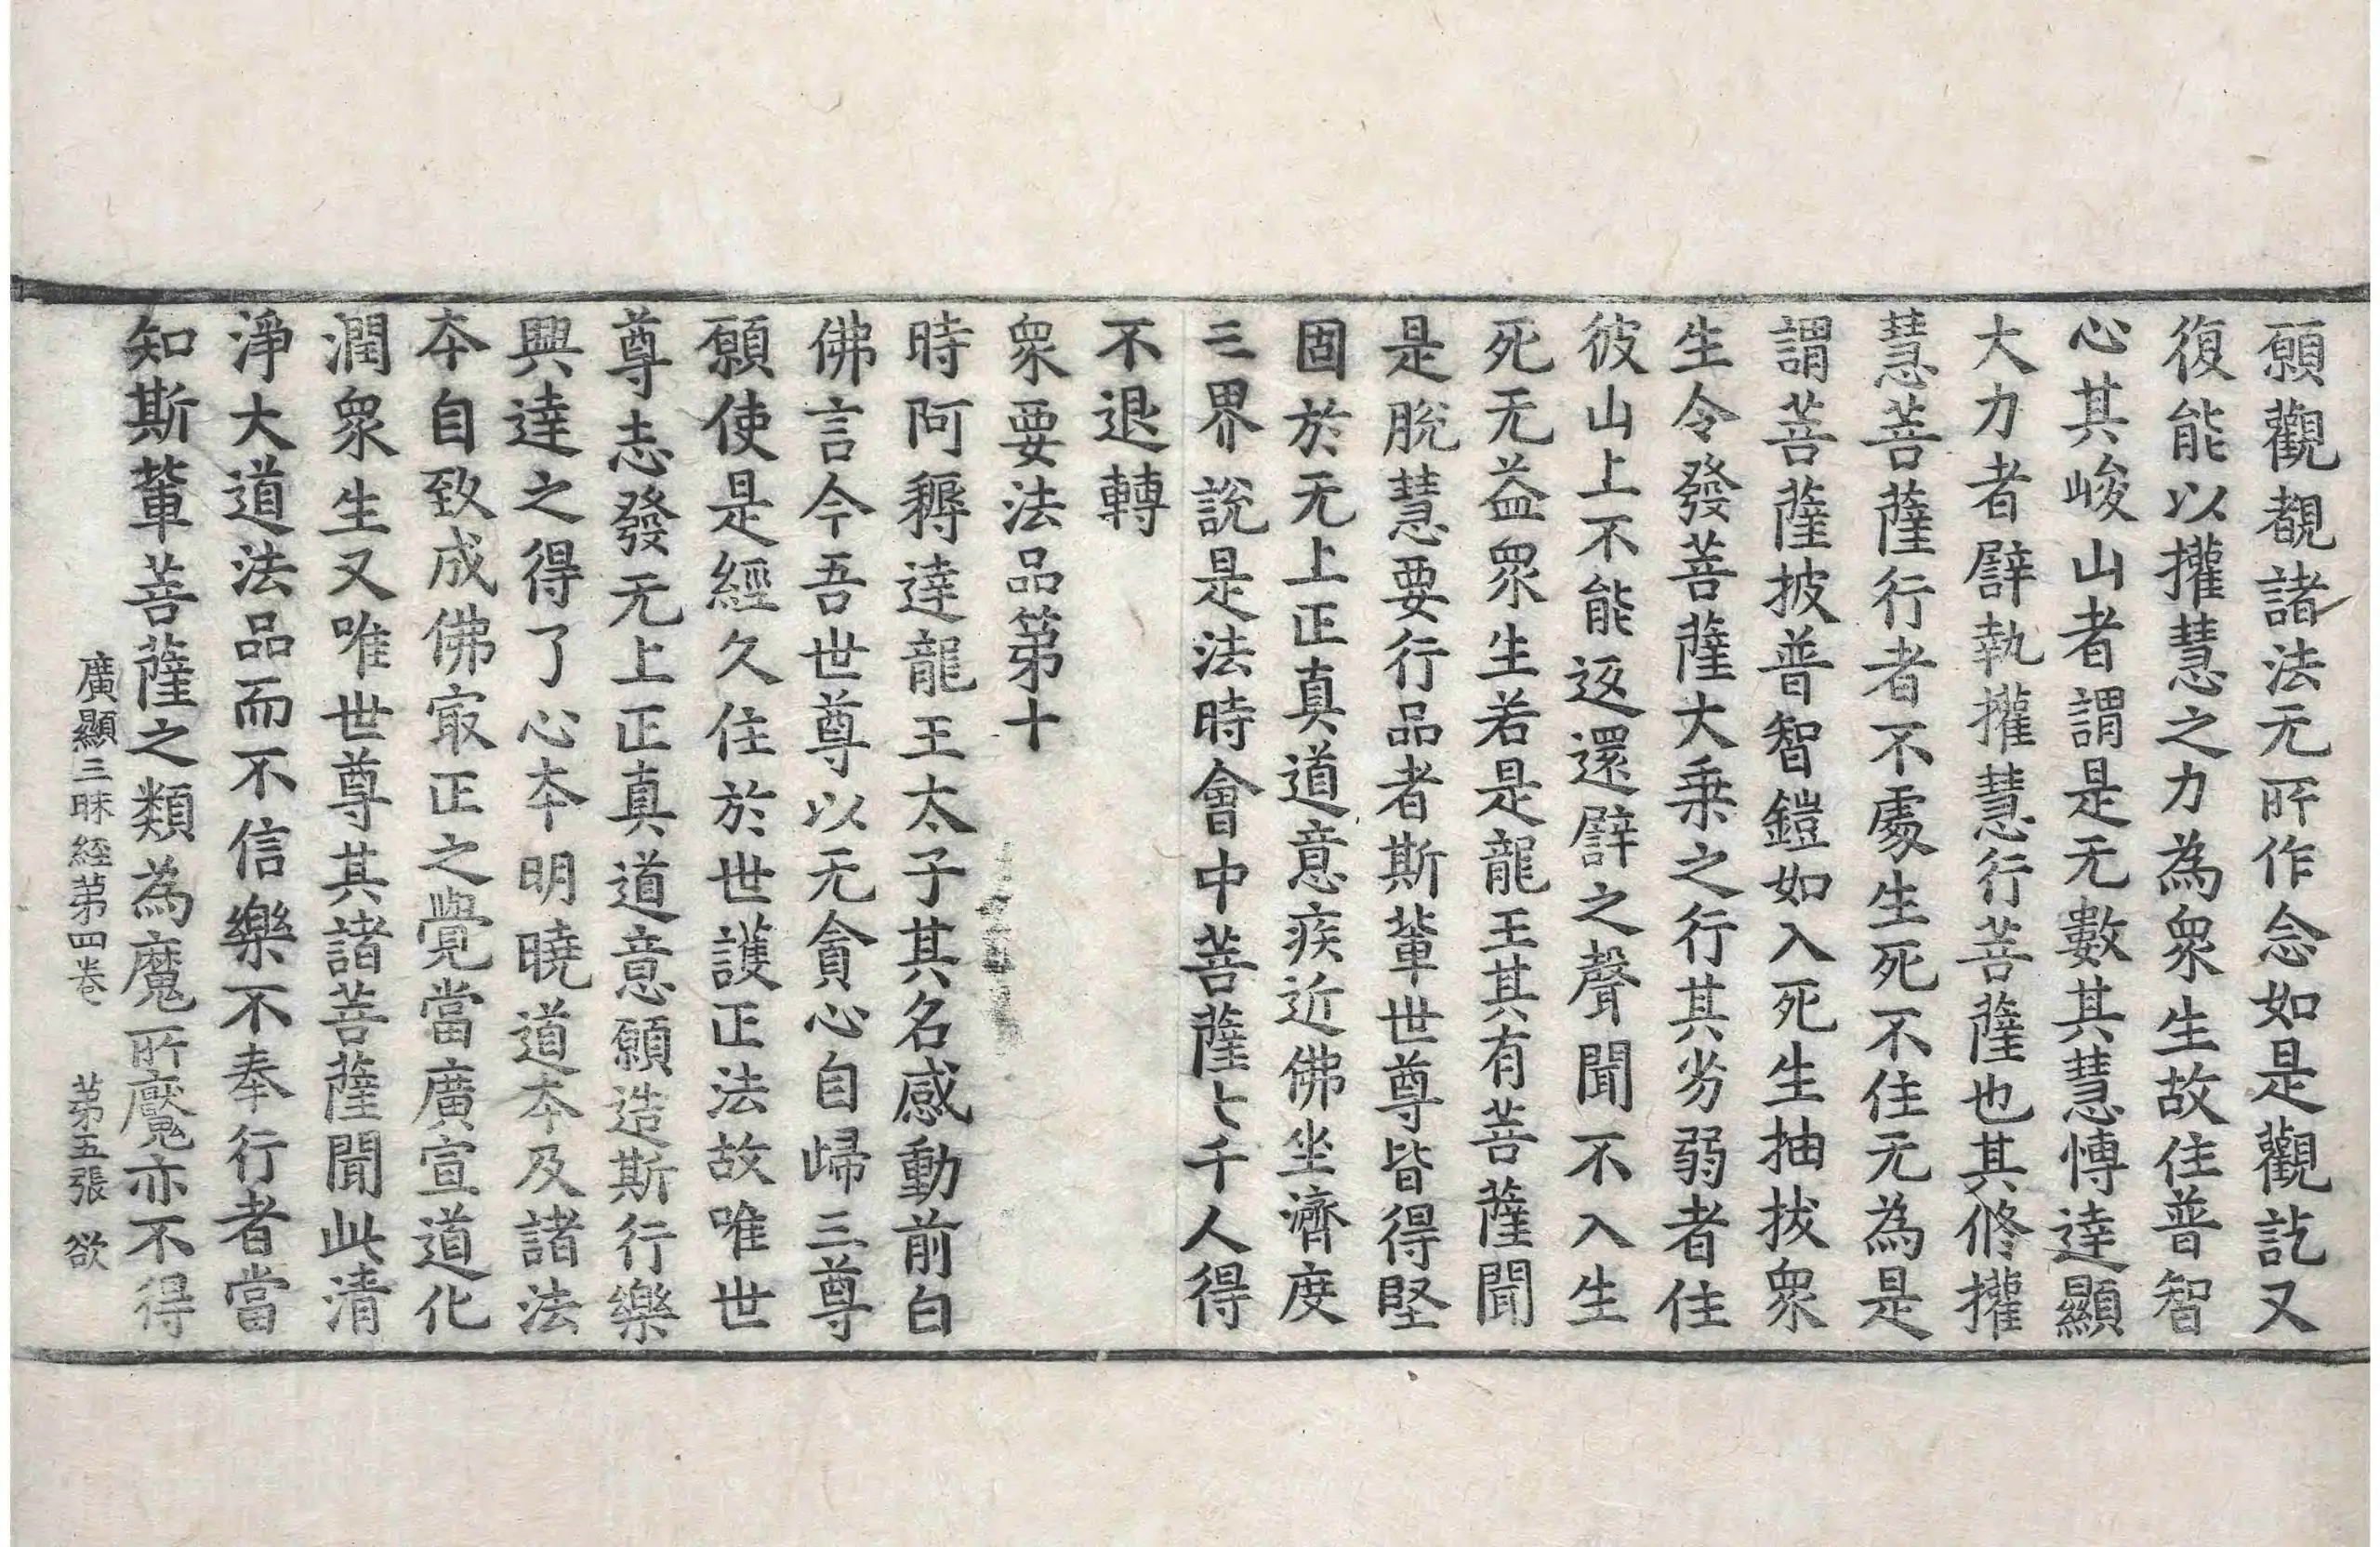 願觀覩諸法无所作念如是觀訖又
復能以攉慧之力為衆生故住普智
心其峻山者謂是无數其慧愽達顯
大力者譬執攉慧行菩薩也其脩攉
慧菩薩行者不處生死不住无為是
謂菩薩披普智鎧如入死生抽拔衆
生令發菩薩大乗之行其劣弱者住
彼山上不能返還譬之聲聞不入生
死无益衆生若是龍王其有菩薩聞
是脫慧要行品者斯輩世尊皆得堅
固於无上正真道意疾近佛坐濟度
三界說是法時會中菩薩七千人得
不退轉
衆要法品第十
時阿耨達龍王太子其名感動前白
佛言今吾世尊以无貪心自歸三尊
願使是經久住於世護正法故唯世
尊志發无上正真道意願造斯行樂
興達之得了心本明曉道本及諸法
本自致成佛㝡正之覺當廣宣道化
潤衆生又唯世尊其諸菩薩聞此清
淨大道法品而不信樂不奉行者當
知斯輩菩薩之類為魔所魘亦不得
廣顯三昧經第四卷 第五張 欲